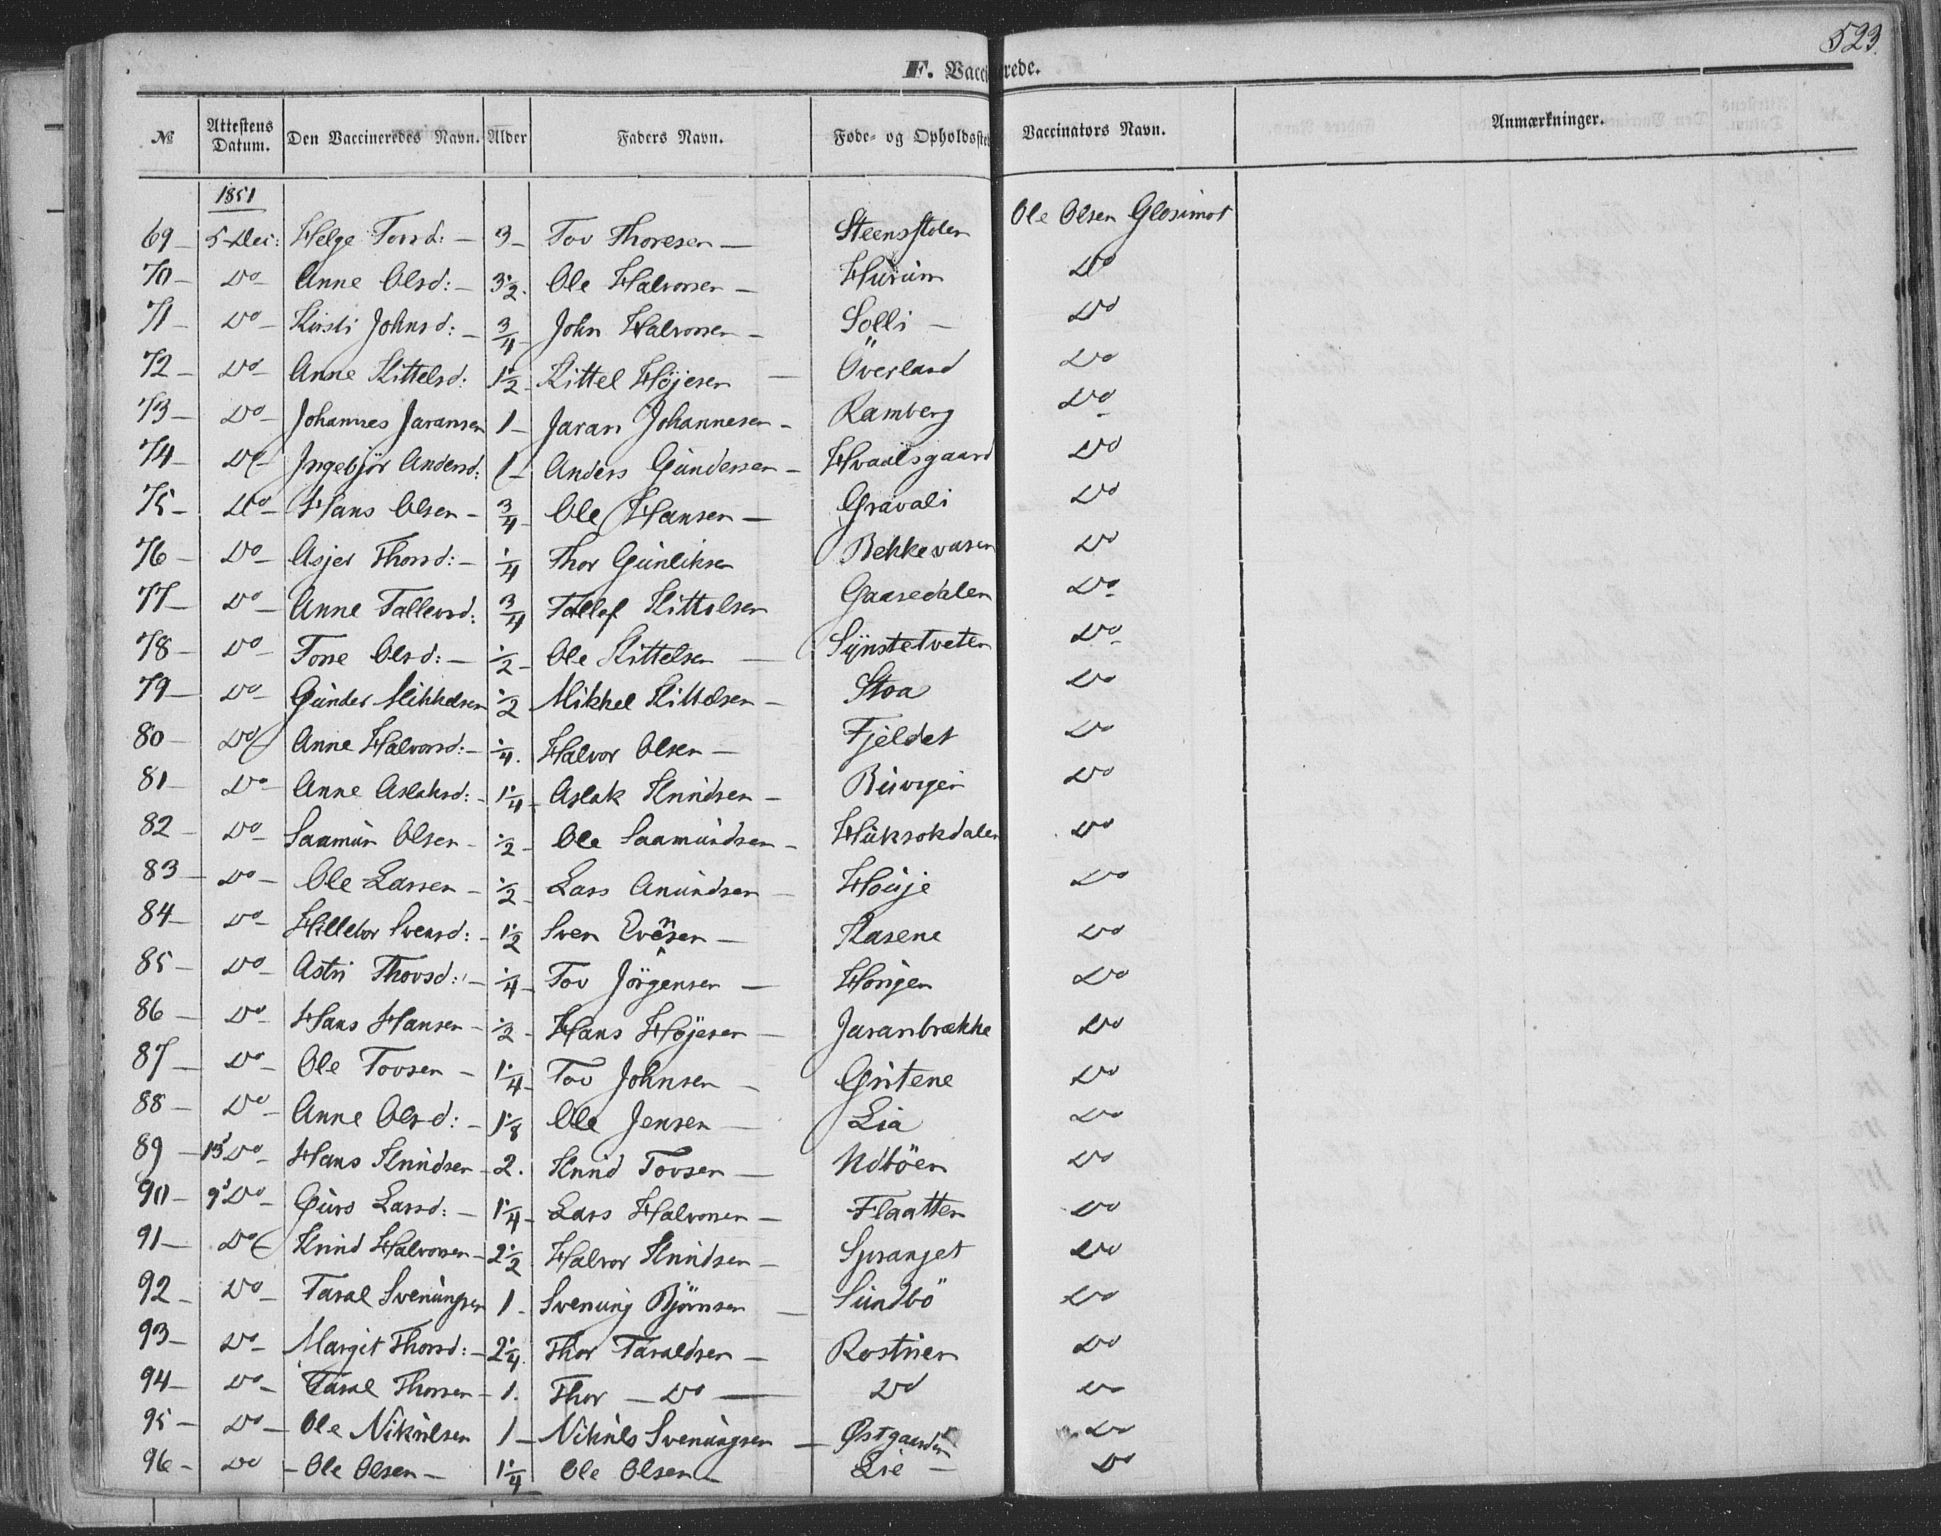 523.
F. Vaccinerede.
№ Attestens Datum. Den Vaccineredes Navn. Alder Faders Navn. Føde- og Opholdssted Vaccinators Navn. Anmærkninger.
1851
69 – 5 Dec: Helge Tovsd: – 3 – Tov Thoresen – Steensstolen Ole Olsen Glosimot
70 – Do – Anne Olsd: – 3 1/2. Ole Halvorsen – Hurum Do
71 – Do – Kirsti Johnsd: – 3/4 John Halvorsen – Solli – Do
72 – Do – Anne Kittelsd: 1 1/2 – Kittel Højesen – Överland Do
73 – Do – Johannes Jaransen 1 – Jaran Johannesen – Ramberg Do
74 – Do – Ingebjör Andersd: 1 – Anders Gundersen – Hvaalsgaard Do
75 – Do – Hans Olsen – 3/4 – Ole Hansen – Gravali Do
76 – Do – Asjer Thorsd: – 1/4 Thor Gunliksen Bekkevasen Do
77 – Do – Anne Tallevsd: 3/4 Tallef Kittelsen Gaasedalen Do
78 – Do – Tone Olsd: – 1/2 – Ole Kittelsen – Synstetveten Do
79 – Do – Gunder Mikkelsen 1/2 Mikkel Kittelsen – Stoa Do
80 – Do Anne Halvorsd: – 1/4. Halvor Olsen – Fjeldet Do
81 – Do – Anne Aslaksd: – 1 1/4 – Aslak Knudsen – Buvegen Do
82 – Do – Saamun Olsen – 1/2 – Ole Saamundsen – Huksokdalen Do
83 – Do – Ole Larsen – 1/2 Lars Anundsen – Houje Do
84 – Do – Hillebor Svensd: – 1 1/2 Sven Evensen – Kasene Do
85 – Do – Astri Thovsd: – 1/4 – Tov Jörgensen – Horigen Do
86 – Do – Hans Hansen – 1/2 – Hans Højesen – Jaranbrække Do
87 – Do – Ole Tovsen – 1 1/4 – Tov Johnsen – Gritene Do
88 – Do – Anne Olsd: – 1 1/8 Ole Jensen – Lia Do
89 – 13 Do – Hans Knudsen – 2. Knud Tovsen – Udbøen Do
90 – 9 Do – Guro Larsd: – 1 1/4 – Lars Halvorsen – Flaatten Do
91 – Do Knud Halvorsen – 2 1/2 Halvor Knudsen – Spranget Do
92 – Do – Taral Svenungsen 1 – Svenung Bjørnsen – Sundbö Do
93 – Do – Margit Thorsd: – 2 1/4. Thor Taraldsen – Rostuen Do
94 – Do – Taral Thorsen – 1. Thor – Do – Do Do
95 – Do – Ole Nikulsen 1 – Nikuls Svenungsen – Østgaarden Do
96 – Do – Ole Olsen – 1 1/4 – Ole Olsen – Lie – Do